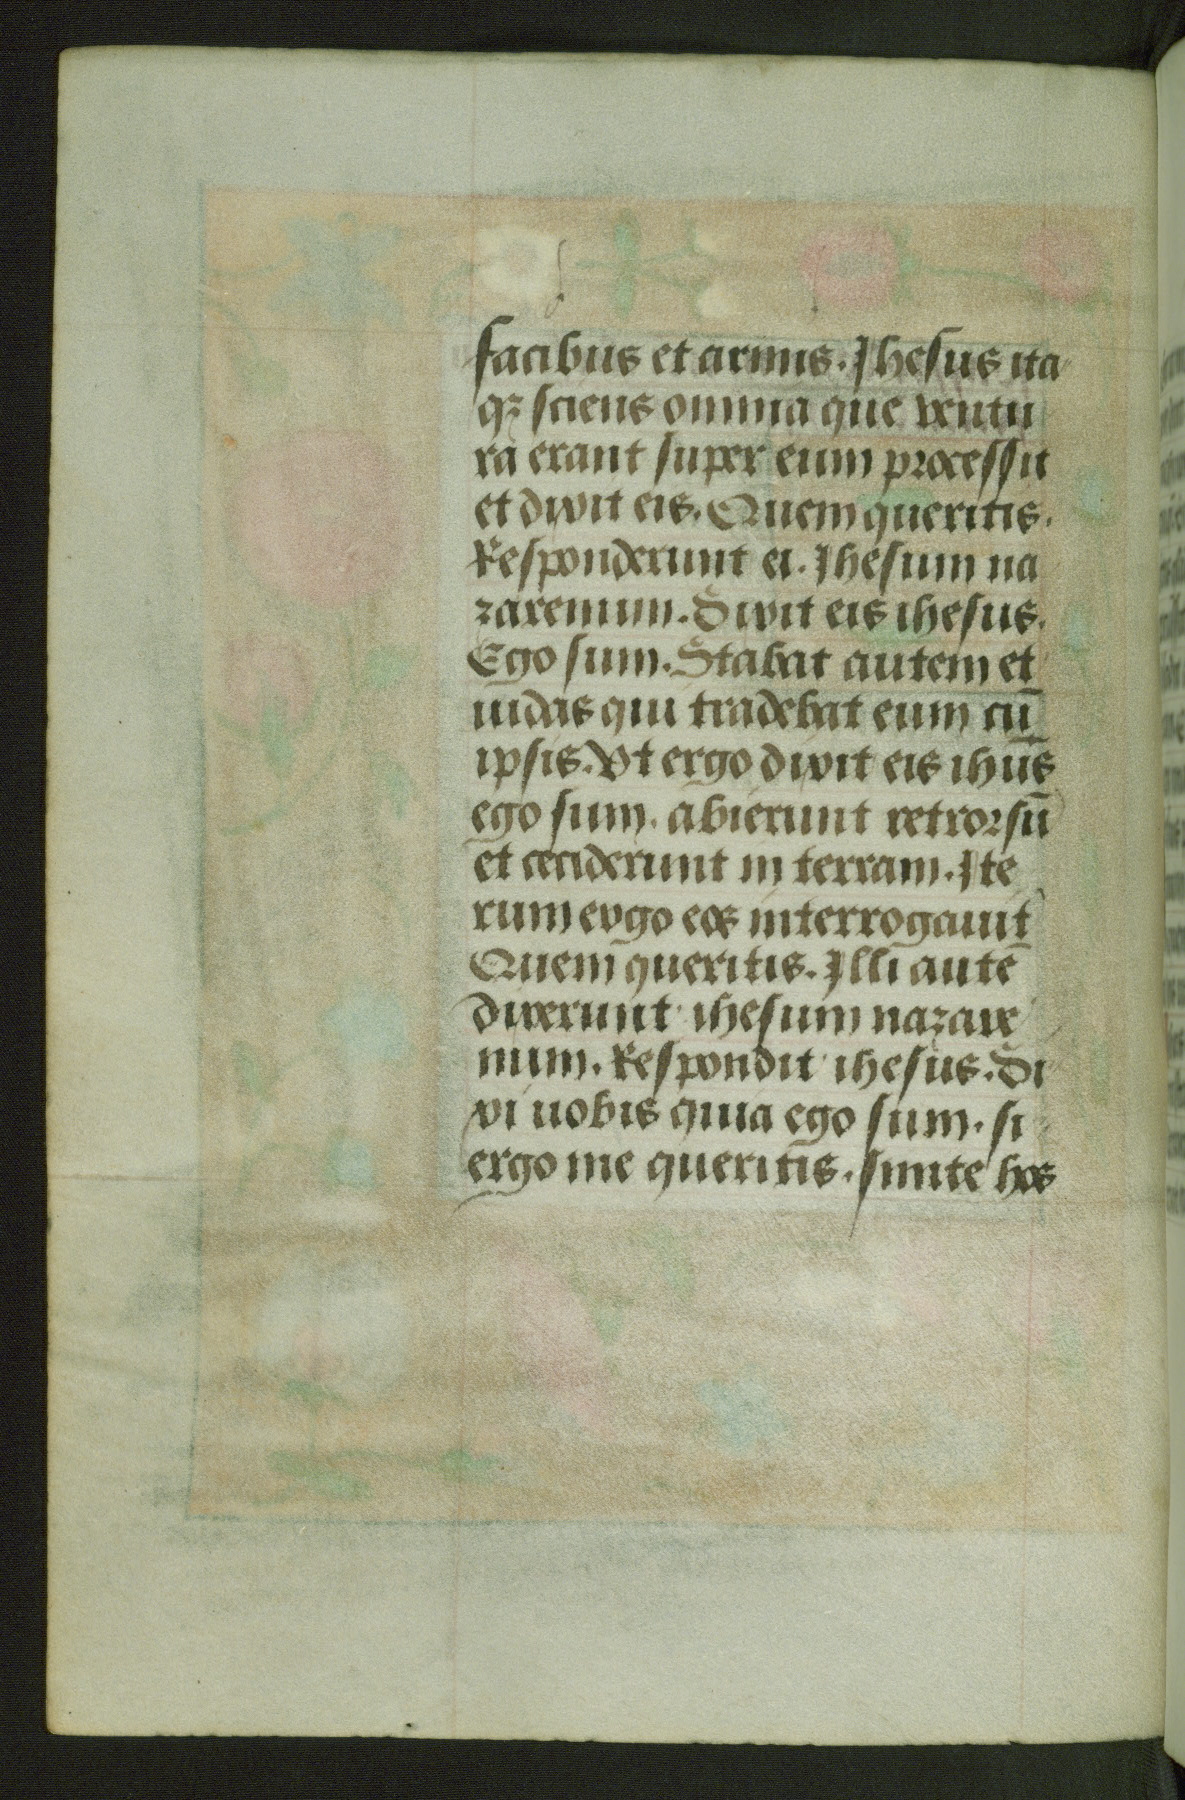 facibus et armis. Jhesus ita
qꝫ sciens omnia que uentu
ra erant super eum processit
et dixit eis. Quem queritis.
Responderunt ei. Jhesum na
zarenum. Dixit eis ihesus.
Ego sum. Stabat autem et
iudas qui tradebat eum cū
ipsis. Vt ergo dixit eis ihūs
ego sum. abierunt retrorsū
et ceciderunt in terram. Ite
rum ergo eos interrogauit
Quem queritis. Illi autē
dixerunt ihesum nazare
num. Respondit ihesus. Di
xi uobis quia ego sum. si
ergo me queritis. sinite hos